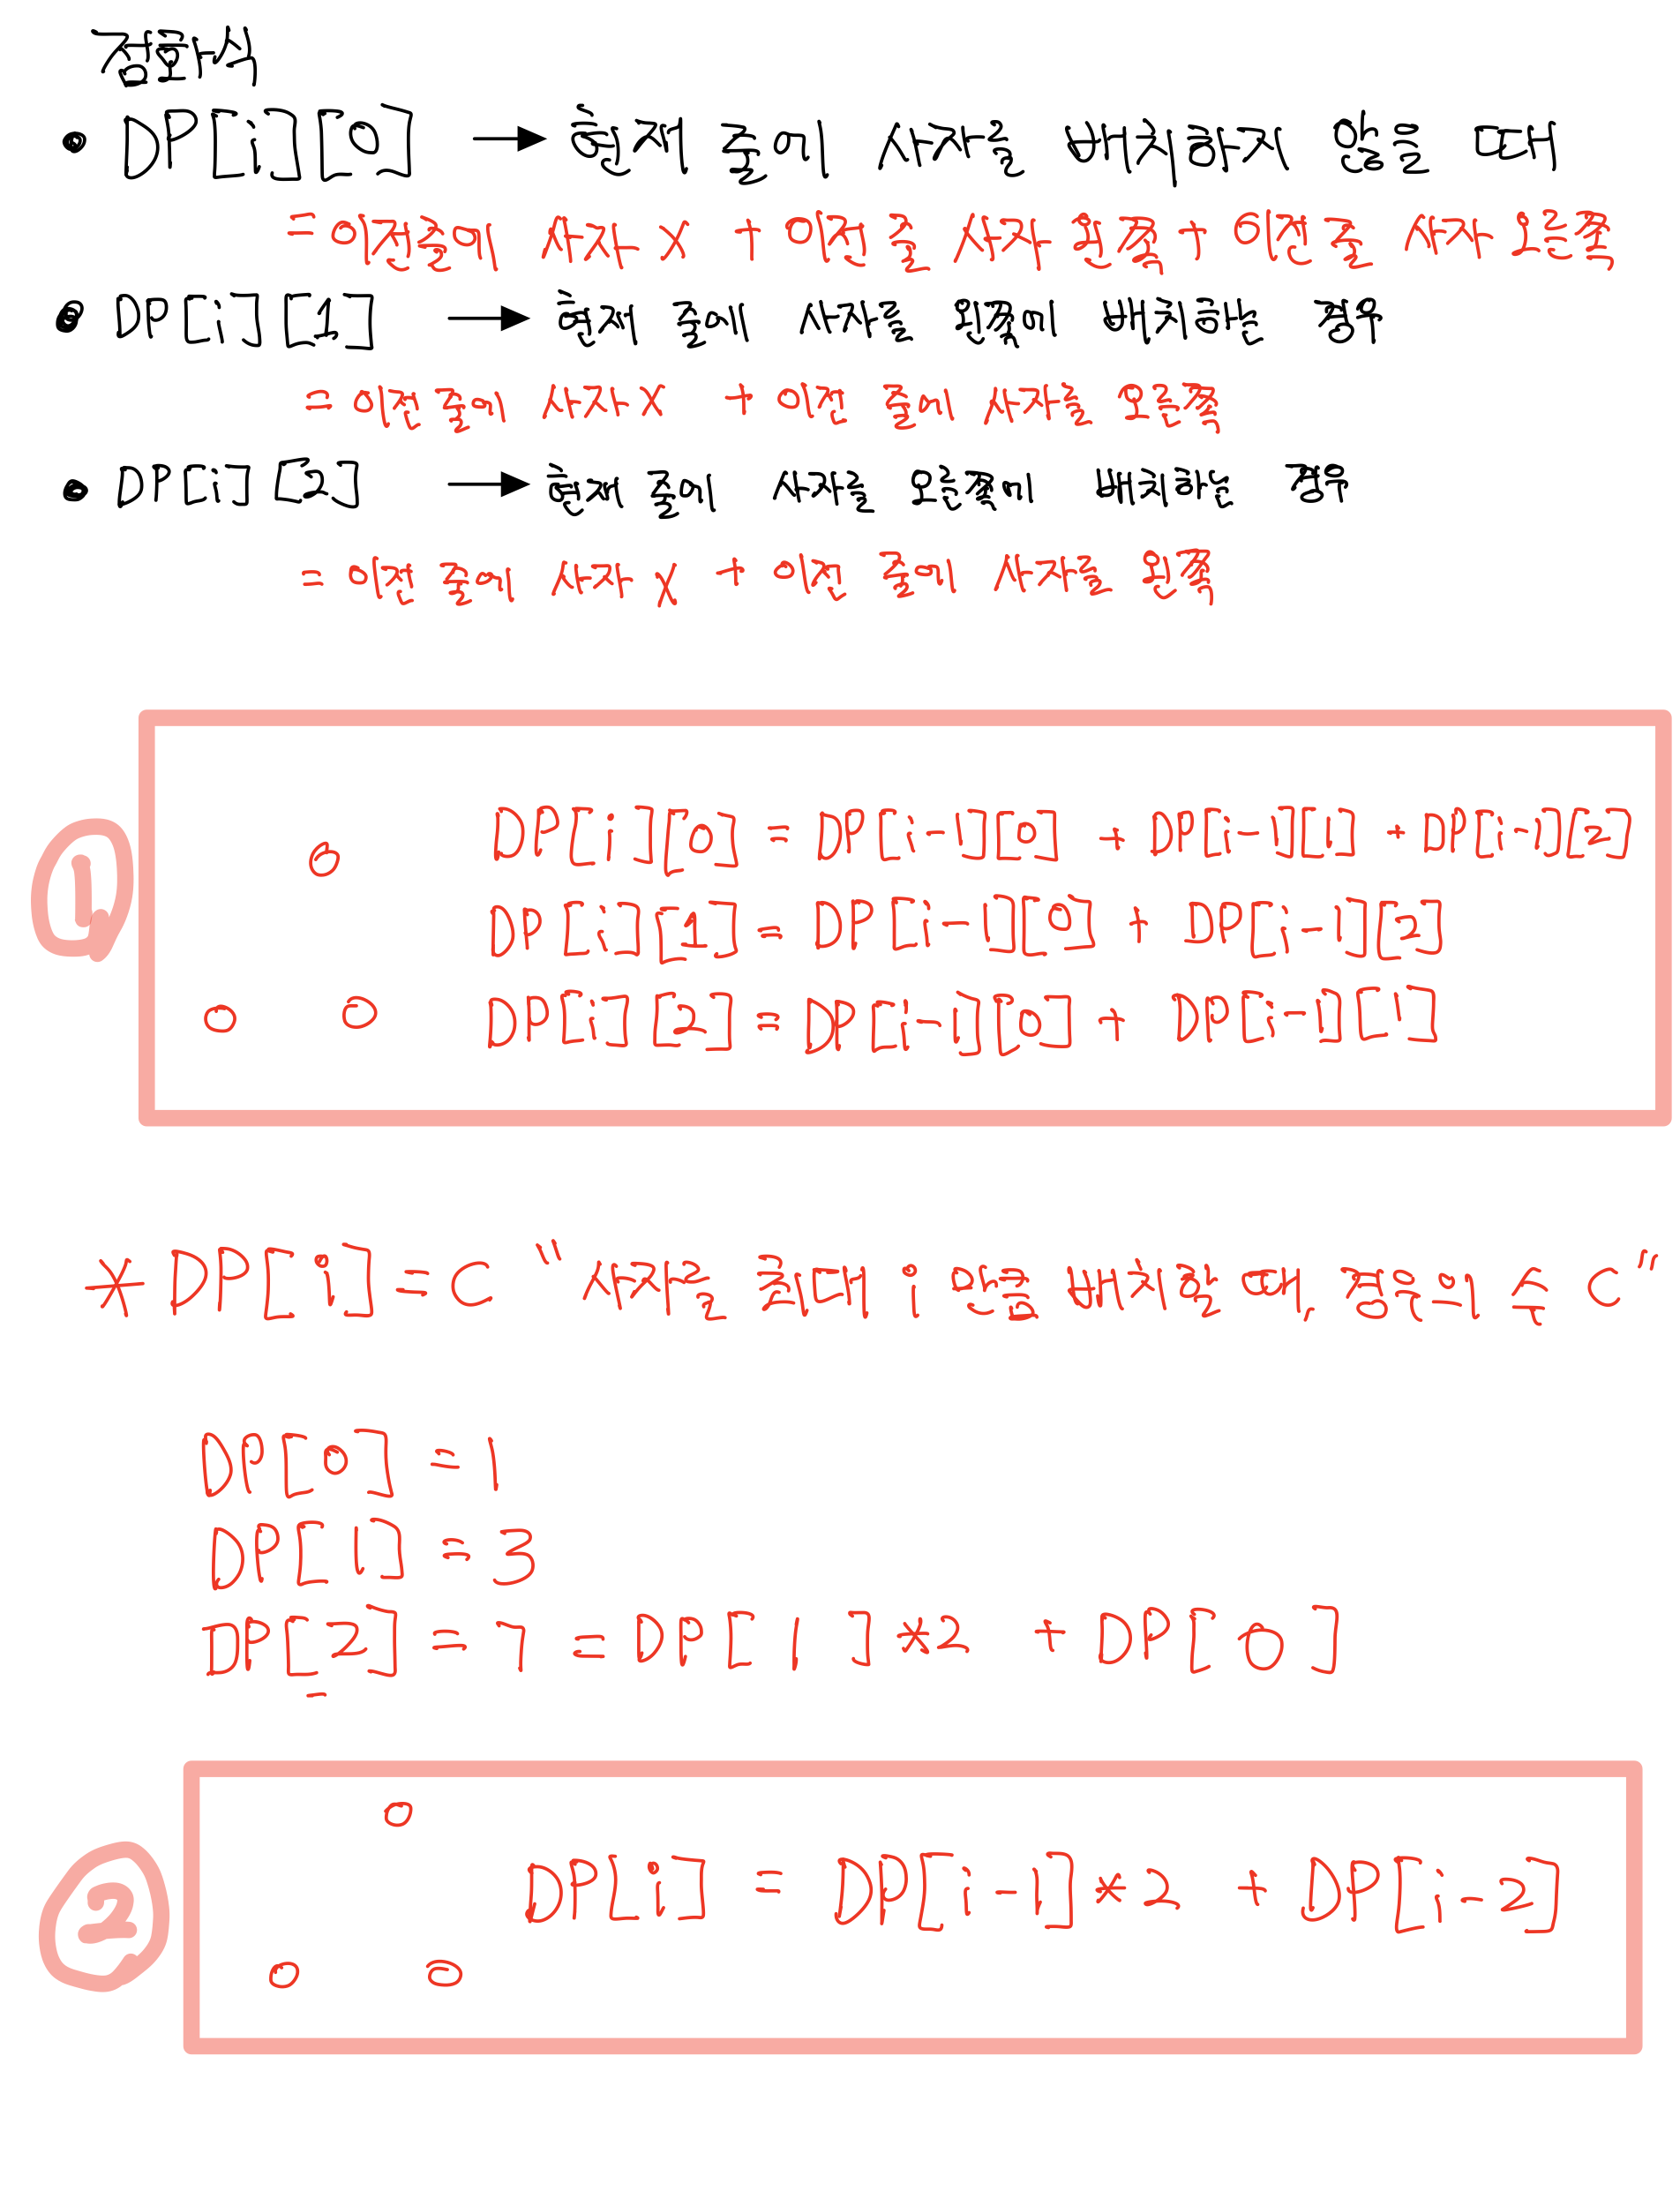 점화식
• DP[i][0] → 현재 줄에 사자를 배치하지 않을 때
= 이전줄에 사자 X + 이전 줄 사자 왼쪽 + 이전 줄 사자 오른쪽
• DP[i][1] → 현재 줄에 사자를 왼쪽에 배치하는 경우
= 이전 줄에 사자 X + 이전 줄에 사자를 오른쪽
• DP[i][2] → 현재 줄에 사자를 오른쪽에 배치하는 경우
= 이전 줄에 사자 X + 이전 줄에 사자를 왼쪽
①
∴ DP[i][0] = DP[i-1][0] + DP[i-1][1] + DP[i-1][2]
DP[i][1] = DP[i-1][0] + DP[i-1][2]
DP[i][2] = DP[i-1][0] + DP[i-1][1]
* DP[i] = C "사자를 최대 i 만큼 배치할 때, 경우의 수 C"
DP[0] = 1
DP[1] = 3
DP[2] = 7 = DP[1]*2 + DP[0]
②
∴ DP[i] = DP[i-1]*2 + DP[i-2]